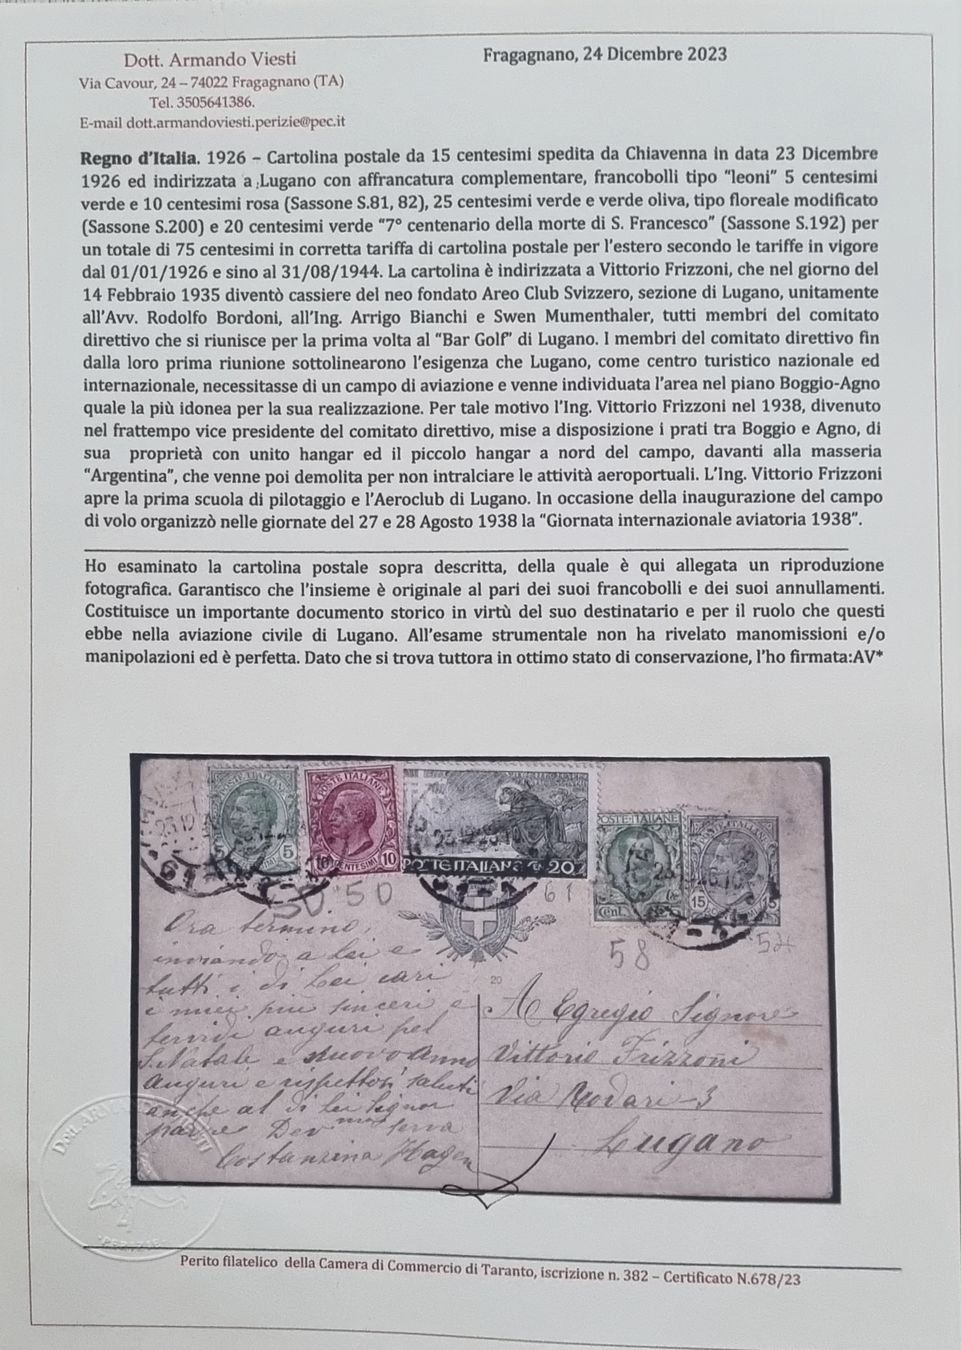 Dott. Armando Viesti
Via Cavour, 24 – 74022 Fragagnano (TA)
Tel. 3505641386.
E-mail dott.armandoviesti.perizie@pec.it
Fragagnano, 24 Dicembre 2023
Regno d'Italia. 1926 – Cartolina postale da 15 centesimi spedita da Chiavenna in data 23 Dicembre
1926 ed indirizzata a ;Lugano con affrancatura complementare, francobolli tipo "leoni" 5 centesimi
verde e 10 centesimi rosa (Sassone S.81, 82), 25 centesimi verde e verde oliva, tipo floreale modificato
(Sassone S.200) e 20 centesimi verde "7° centenario della morte di S. Francesco" (Sassone S.192) per
un totale di 75 centesimi in corretta tariffa di cartolina postale per l'estero secondo le tariffe in vigore
dal 01/01/1926 e sino al 31/08/1944. La cartolina è indirizzata a Vittorio Frizzoni, che nel giorno del
14 Febbraio 1935 diventò cassiere del neo fondato Areo Club Svizzero, sezione di Lugano, unitamente
all'Avv. Rodolfo Bordoni, all'Ing. Arrigo Bianchi e Swen Mumenthaler, tutti membri del comitato
direttivo che si riunisce per la prima volta al "Bar Golf" di Lugano. I membri del comitato direttivo fin
dalla loro prima riunione sottolinearono l'esigenza che Lugano, come centro turistico nazionale ed
internazionale, necessitasse di un campo di aviazione e venne individuata l'area nel piano Boggio-Agno
quale la più idonea per la sua realizzazione. Per tale motivo l'Ing. Vittorio Frizzoni nel 1938, divenuto
nel frattempo vice presidente del comitato direttivo, mise a disposizione i prati tra Boggio e Agno, di
sua proprietà con unito hangar ed il piccolo hangar a nord del campo, davanti alla masseria
"Argentina", che venne poi demolita per non intralciare le attività aeroportuali. L'Ing. Vittorio Frizzoni
apre la prima scuola di pilotaggio e l'Aeroclub di Lugano. In occasione della inaugurazione del campo
di volo organizzò nelle giornate del 27 e 28 Agosto 1938 la "Giornata internazionale aviatoria 1938".
Ho esaminato la cartolina postale sopra descritta, della quale è qui allegata un riproduzione
fotografica. Garantisco che l'insieme è originale al pari dei suoi francobolli e dei suoi annullamenti.
Costituisce un importante documento storico in virtù del suo destinatario e per il ruolo che questi
ebbe nella aviazione civile di Lugano. All'esame strumentale non ha rivelato manomissioni e/o
manipolazioni ed è perfetta. Dato che si trova tuttora in ottimo stato di conservazione, l'ho firmata:AV*
POSTE ITALIANE
5 5
POSTE ITALIANE
10 CENTESIMI 10
POSTE ITALIANE 20
POSTE ITALIANE
Cent.
POSTE ITALIANE
15 15
23.12
50 50
61
58
52
20
Ora termino,
inviando a Lei e
tutti i di Lei cari
i miei più sinceri e
fervidi auguri pel
S. Natale e nuovo anno
auguri e rispettosi saluti
anche al di lei Signor
padre Dev ma serva
Costanzina Hagen
A Egregio Signore
Vittorio Frizzoni
Via Rodari 3
Lugano
Dott. ARMANDO VIESTI
PERIZIE
Perito filatelico della Camera di Commercio di Taranto, iscrizione n. 382 – Certificato N.678/23